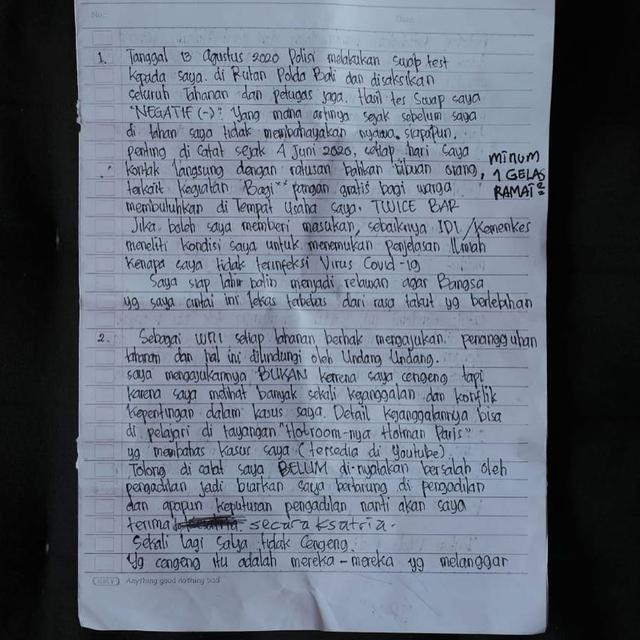 No.: Date:
1. Tanggal 13 Agustus 2020 Polisi melakukan swap test
kepada saya. di Rutan Polda Bali dan disaksikan
seluruh Tahanan dan petugas jaga. Hasil tes Swap saya
"NEGATIF (-)". Yang mana artinya sejak sebelum saya
di tahan saya tidak membahayakan nyawa siapapun.
penting di catat sejak 4 Juni 2020, setiap hari saya
kontak langsung dengan ratusan bahkan ribuan orang,
terkait kegiatan Bagi²" pangan gratis bagi warga
membutuhkan di Tempat Usaha saya. TWICE BAR
minum
1 GELAS
RAMAI²
Jika boleh saya memberi masukan, sebaiknya IDI/Kemenkes
meneliti kondisi saya untuk menemukan penjelasan Ilmiah
kenapa saya tidak terinfeksi Virus Covid-19
Saya siap lahir batin menjadi relawan agar Bangsa
yg saya cintai ini lekas terbebas dari rasa takut yg berlebihan
2. Sebagai WNI setiap tahanan berhak mengajukan penangguhan
tahanan dan hal ini dilindungi oleh Undang Undang.
saya mengajukannya BUKAN karena saya cengeng tapi
karena saya melihat banyak sekali keganggalan dan konflik
kepentingan dalam kasus saya. Detail keganggalannya bisa
di pelajari di tayangan "Hotroom-nya Hotman Paris"
yg membahas kasus saya (tersedia di Youtube)
Tolong di catat saya BELUM di-nyatakan bersalah oleh
pengadilan jadi biarkan saya bertarung di pengadilan
dan apapun keputusan pengadilan nanti akan saya
terima secara ksatria.
Sekali lagi saya tidak cengeng.
Yg cengeng itu adalah mereka-mereka yg melanggar
Anything good nothing bad